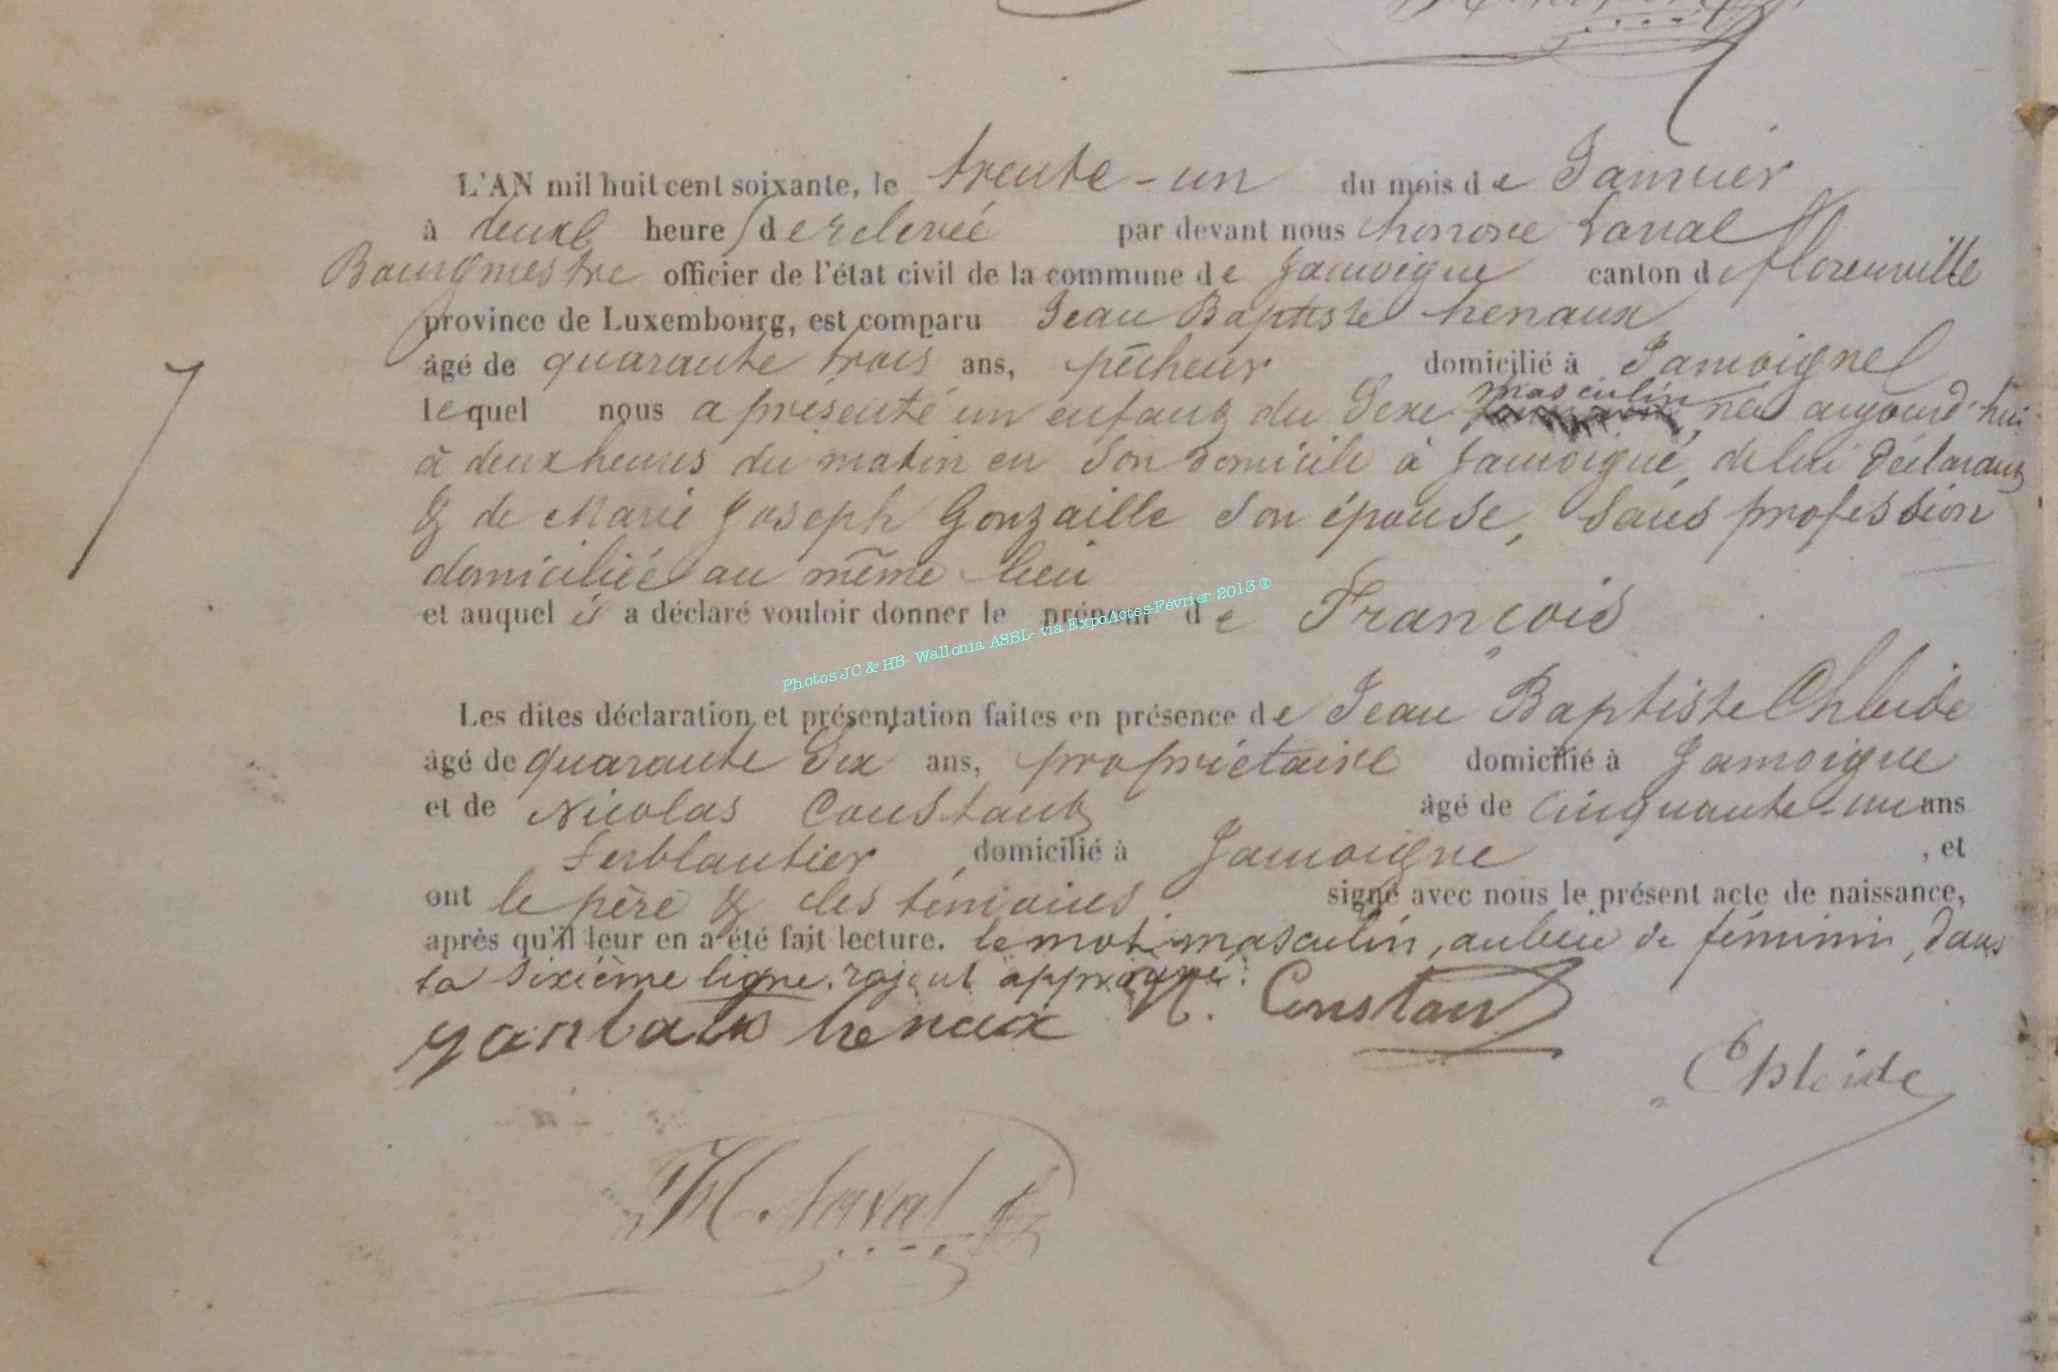 L'AN mil huit cent soixante, le trente-un du mois de Janvier
à deux heures de relevée par devant nous honoré Laval
Bourgmestre officier de l'état civil de la commune de Jamoigne canton de florenville
province de Luxembourg, est comparu Jean Baptiste henaux
âgé de quarante trois ans, pêcheur domicilié à Jamoigne
masculin
lequel nous a présenté un enfant du Sexe né aujourd'hui
à deux heures du matin en Son domicile à Jamoigne, de lui déclarant
& de Marie Joseph Gonzaille Son épouse, Sans profession
domiciliée au même lieu
et auquel il a déclaré vouloir donner le prénom de François
Photos JC & HB- Wallonia ASBL- via ExpoActes-Février 2013 ®
Les dites déclaration et présentation faites en présence de Jean Baptiste Chleide
âgé de quarante Six ans, propriétaire domicilié à Jamoigne
et de Nicolas Constant âgé de cinquante-un ans
ferblantier, domicilié à Jamoigne, et
ont le père & les témoins signé avec nous le présent acte de naissance,
après qu'il leur en a été fait lecture. le mot masculin, au lieu de féminin, dans
la sixième ligne, approuvé.
henaux N. Constant
Chleide
H. Laval
7